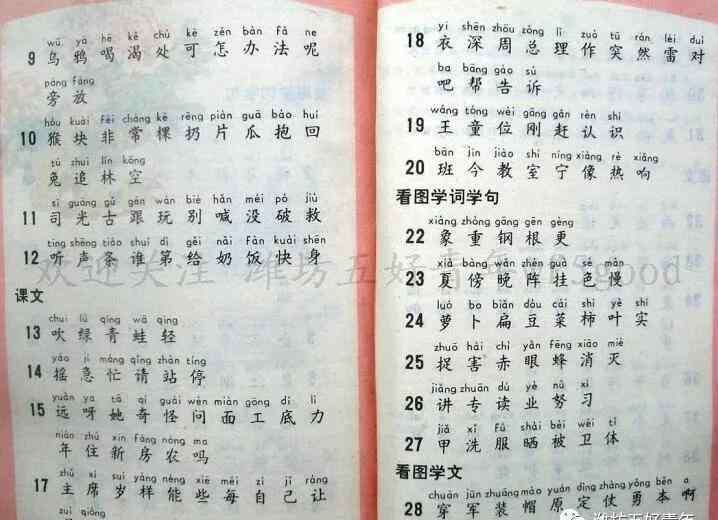 wū yā hē kě chù kě zěn bàn fǎ ne
9 乌 鸦 喝 渴 处 可 怎 办 法 呢
páng fàng
旁 放
hóu kuài fēi cháng kē rēng piàn guā bào huí
10 猴 块 非 常 棵 扔 片 瓜 抱 回
tù zhuī lín kōng
兔 追 林 空
sī guāng gǔ gēn wán bié hǎn méi pò jiù
11 司 光 古 跟 玩 别 喊 没 破 救
tīng shēng tiáo shuí dì gěi nǎi fàn kuài shēn
12 听 声 条 谁 第 给 奶 饭 快 身
课文
chuī lǜ qīng wā qīng
13 吹 绿 青 蛙 轻
yáo jí máng qǐng zhàn tíng
14 摇 急 忙 请 站 停
yuǎn ya tā qí guài wèn miàn gōng dǐ lì
15 远 呀 她 奇 怪 问 面 工 底 力
nián zhù xīn fáng nóng ma
年 住 新 房 农 吗
zhǔ xí suì yàng néng xiē měi zì jǐ ràng
17 主 席 岁 样 能 些 每 自 己 让
zuì qióng
yī shēn zhōu zǒng lǐ zuò tū rán léi duì
18 衣 深 周 总 理 作 突 然 雷 对
ba bāng gào sù
吧 帮 告 诉
wáng tóng wèi gāng gǎn rèn shí
19 王 童 位 刚 赶 认 识
bān jīn jiào shì níng xiàng rè xiǎng
20 班 今 教 室 宁 像 热 响
看图学词学句
xiàng zhòng gāng gēn gèng
22 象 重 钢 根 更
xià bàng wǎn zhèn guà sè màn
23 夏 傍 晚 阵 挂 色 慢
luó bo biǎn dòu cài shì yè shí
24 萝 卜 扁 豆 菜 柿 叶 实
zhuō hài chì yǎn fēng xiāo miè
25 捉 害 赤 眼 蜂 消 灭
jiǎng zhuān dú yè nǔ xí
26 讲 专 读 业 努 习
jiǎ xǐ fú shài bèi wèi tǐ
27 甲 洗 服 晒 被 卫 体
看图学文
chuān jūn zhuāng mào yuán dìng shǐ yǒng běn a
28 穿 军 装 帽 原 定 使 勇 本 啊
欢迎关注 潍坊五好青年
good
潍坊五好青年